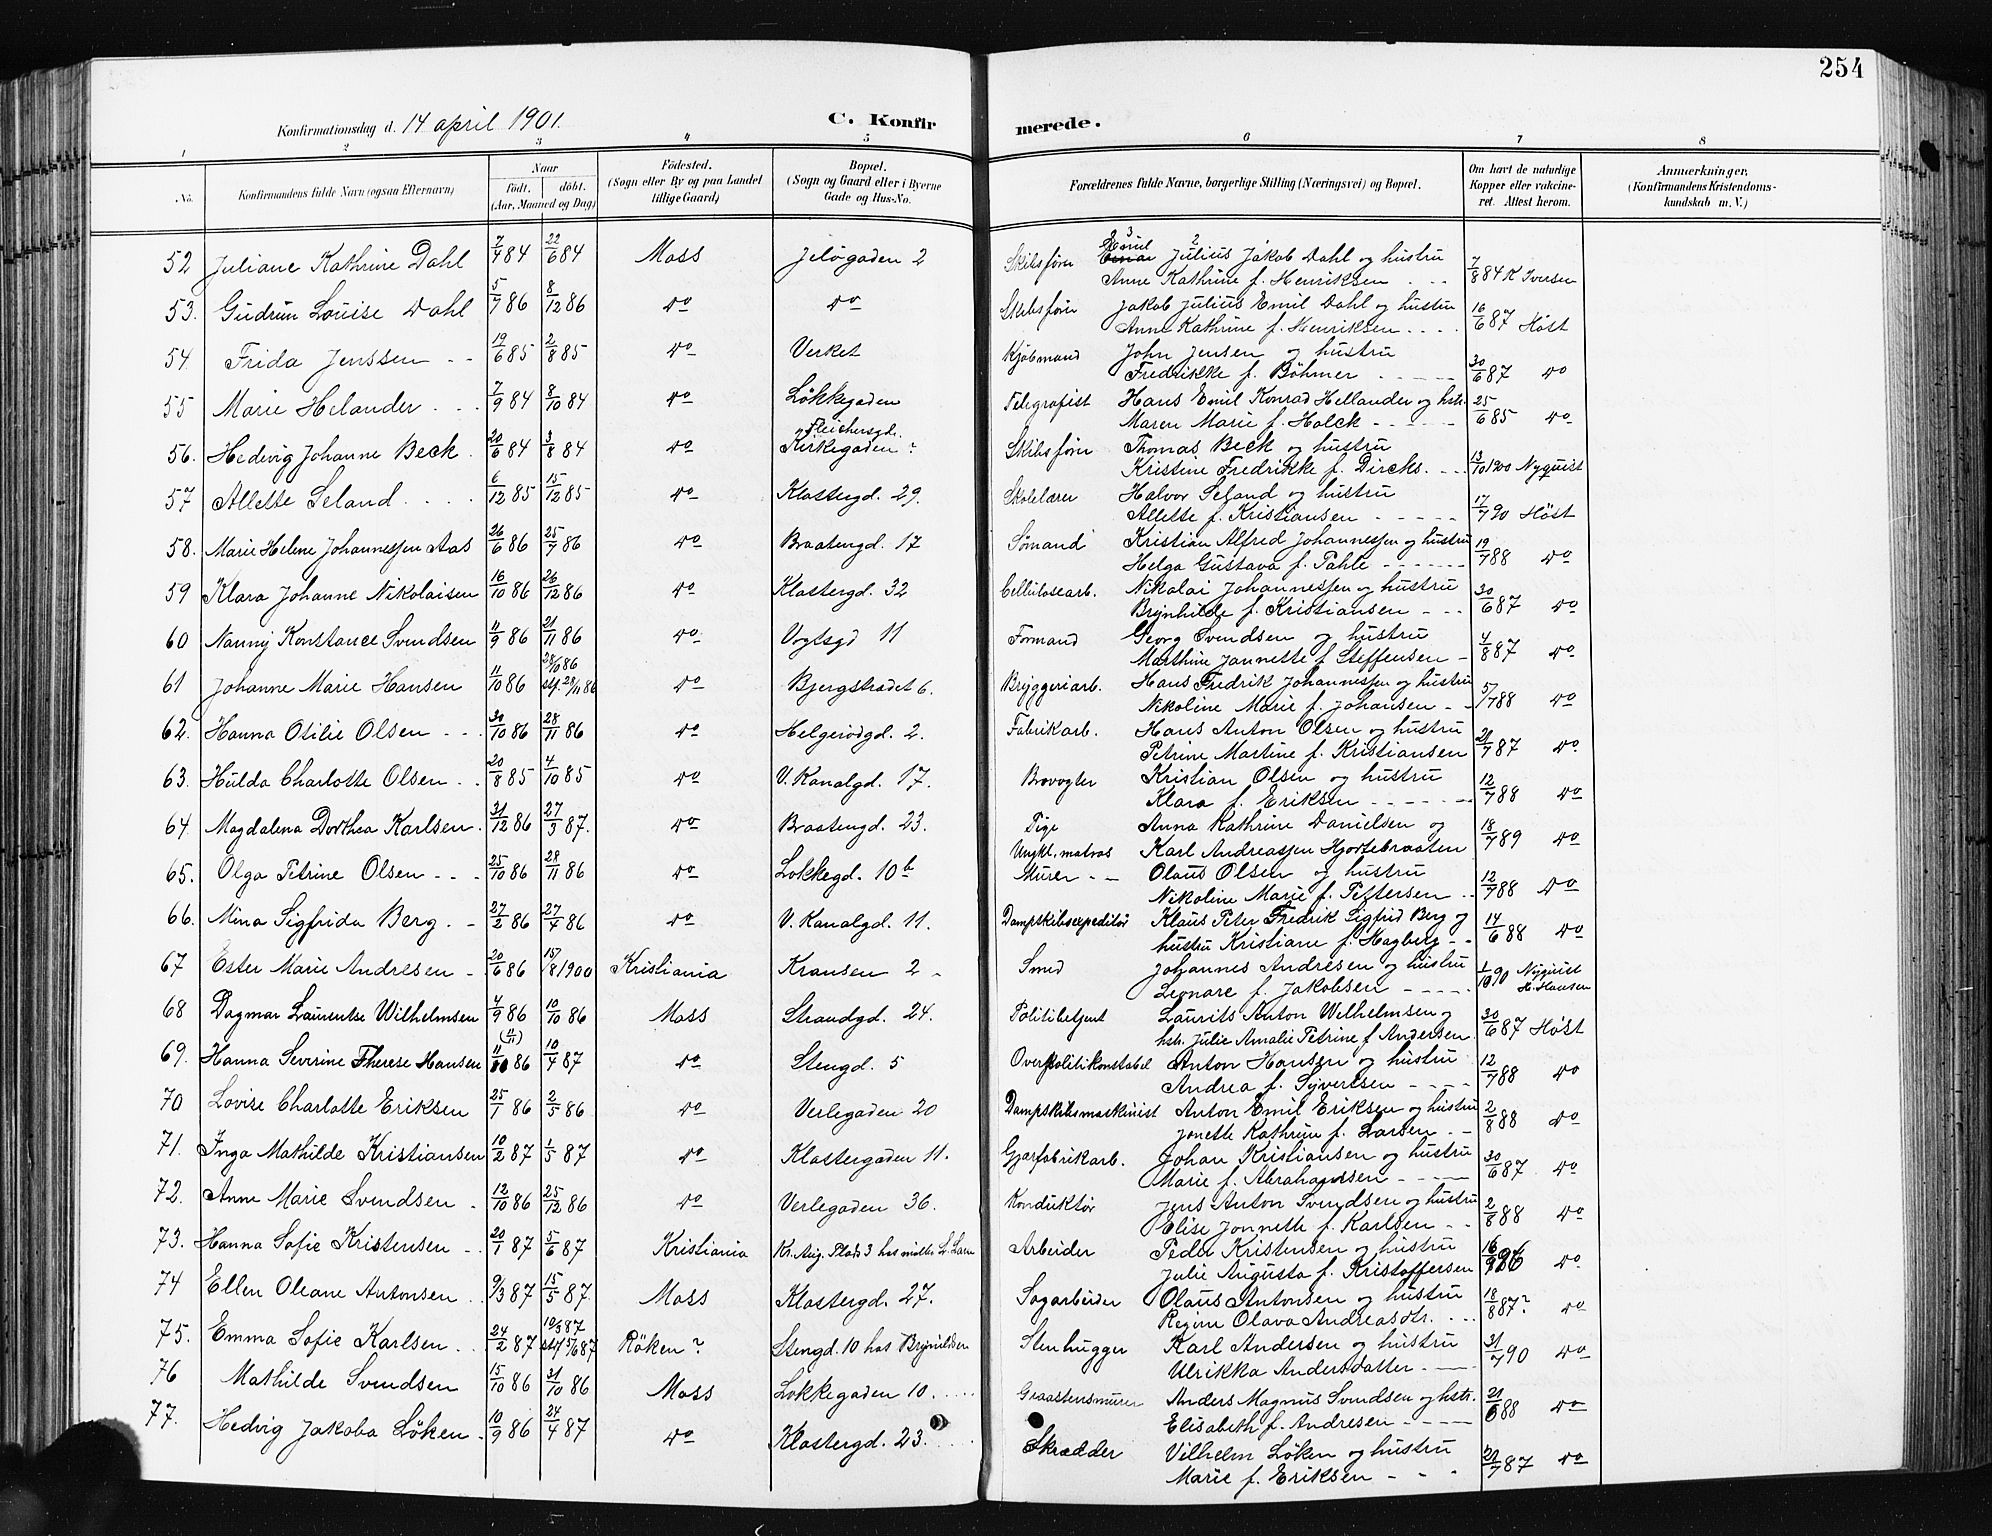 254
Konfirmationsdag d. 14 april 1901.
C. Konfirmerede.
1 2 3 4 5 6 7 8
No. Konfirmandens fulde Navn (ogsaa Efternavn) Naar født. døbt. (Aar, Maaned og Dag) Fødested. (Sogn eller By og paa Landet tillige Gaard) Bopæl. (Sogn og Gaard eller i Byerne Gade og Hus-No. Forældrenes fulde Navne, borgerlige Stilling (Næringsvei) og Bopæl. Om havt de naturlige Kopper eller vakcineret. Attest herom. Anmærkninger, (Konfirmandens Kristendomskundskab m. V.)
52 Juliane Kathrine Dahl 7/4 84 22/6 84 Moss Jeløgaden 2 Skibsfører Emil Julius Jakob Dahl og hustru
Anne Kathrine f. Henriksen 7/8 84 K Iversen
53. Gudrun Louise Dahl 5/7 86 8/12 86 do do Skibsfører Jakob Julius Emil Dahl og hustru
Anne Kathrine f. Henriksen 16/6 87 Høst
54. Frida Jenssen 19/6 85 2/8 85 do Verket Kjøbmand John Jensen og hustru
Fredrikke f. Böhmer 30/6 87 do
55 Marie Helander 7/9 84 8/10 84 do Løkkegaden Telegrafist Hans Emil Konrad Hellander og hstr.
Maren Marie f. Holck 25/6 85 do
56. Hedevig Johanne Beck 20/6 84 3/8 84 do Fleichersgd. Kirkegaden? Skibsfører Thomas Beck og hustru
Kristine Fredrikke f. Dircks. 13/10 1900 Nyquist
57 Allette Seland 6/12 85 15/12 85 do Klostergd. 29. Skolelærer Halvor Seland og hustru
Allette f. Kristiansen 17/7 90 Høst
58. Marie Helene Johannessen Aas 26/6 86 25/7 86 do Braatengd. 17 Sømand Kristian Alfred Johannessen og hustru
Helga Gustava f. Pahle 19/7 88 do
59 Klara Johanne Nikolaisen 16/10 86 26/12 86 do Klostergd. 32 Cellulosearb. Nikolai Johannessen og hustru
Brynhilde f. Kristiansen 30/6 87 do
60 Nanny Konstance Svendsen 11/9 86 21/11 86 do Vogtsgd 11 Formand Georg Svendsen og hustru
Marthine Jannette f. Steffensen 4/8 87 do
61 Johanne Marie Hansen 11/10 86 28/10 86 stf. 28/11 86 do Bjergstrædet 6. Bryggeriarb. Hans Fredrik Johannessen og hustru
Nikoline Marie f. Johansen 5/7 88 do
62. Hanna Otilie Olsen 30/10 86 28/11 86 do Helgerødgd. 2. Fabrikarb. Hans Anton Olsen og hustru
Petrine Martine f. Kristiansen 21/7 87 do
63. Hulda Charlotte Olsen 20/8 85 4/10 85 do V. Kanalgd. 17. Brovogter Kristian Olsen og hustru
Klara f. Eriksen 12/7 88 do
64. Magdalena Dorthea Karlsen 31/12 86 27/3 87. do Braatengd. 23. Pige Anna Kathrine Danielsen og
Ungkl. matros Karl Andreassen Hjortebraaten 18/7 89 do
65. Olga Petrine Olsen 25/10 86 28/11 86 do Løkkegd. 10b Murer Olaus Olsen og hustru
Nikoline Marie f. Pettersen 12/7 88 do
66. Mina Sigfrida Berg 27/2 86 27/4 86 do V. Kanalgd. 11. Dampskibsexpeditør Klaus Peter Fredrik Sigfrid Berg og
hustru Kristiane f. Hagberg 14/6 88 do
67 Ester Marie Andresen 20/6 86 15/8 1900 Kristiania Kransen 2 Smed Johannes Andresen og hustru
Leonare f. Jakobsen 1/10 90 Nyquist H. Hansen
68 Dagmar Laurentse Wilhelmsen 4/9 86 10/10 86 Moss Strandgd. 24. Politibetjent Laurits Anton Wilhelmsen og
hstr. Julie Amalie Petrine f. Andersen 30/6 87 Høst
69. Hanna Severine Therese Hansen (11/11) 11/10 86 10/4 87 do Stengd. 5 Overpolitikonstabel Anton Hansen og hustru
Andrea f. Syvertsen 12/7 88 do
70 Lovise Charlotte Eriksen 25/1 86 2/5 86 do Verlegaden 20 Dampskibsmaskinist Anton Emil Eriksen og hustru
Jonette Kathrine f. Larsen 2/8 88 do
71. Inga Mathilde Kristiansen 10/2 87 1/5 87 do Klostergaden 11. Gjærfabrikarb. Johan Kristiansen og hustru
Marie f. Abrahamsen 30/6 87 do
72. Anne Marie Svendsen 12/10 86 25/12 86 do Verlegaden 36. Konduktør Jens Anton Svendsen og hustru
Elise Jonnette f. Karlsen 2/8 88 do
73. Hanna Sofie Kristensen 20/1 87 5/6 87 Kristiania Kr. Aug. Plads 3 hos Peder Kristensen og hustru Arbeider
Julie Augusta f. Kristoffersen do
74 Ellen Oleane Antonsen 9/3 87 15/5 87. Moss Klostergd. 27. Sagarbeider Olaus Antonsen og hustru
Regine Olava Andreasdtr. 18/8 87? do
75. Emma Sofie Karlsen 24/2 87 10/3 87 stf 5/6 87 Røken? Stengd. 10 hos Brynildsen Stenhugger Karl Andersen og hustru
Ulrikka Andersdatter 31/7 90 do
76 Mathilde Svendsen 15/10 86 31/10 86 Moss Løkkegaden 10. Graastensmurer Anders Magnus Svendsen og hstr.
Elisabeth f. Andresen 21/6 88 do
77. Hedvig Jakoba Løken 10/9 86 24/4 87 do Klostergd. 23. Skrædder Vilhelm Løken og hustru
Marie f. Eriksen 21/7 87 do